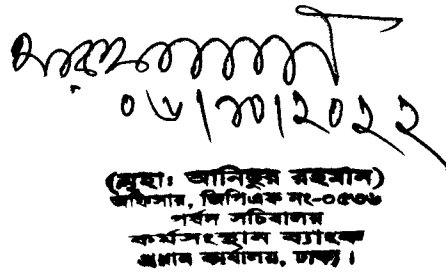 ০৬/১০/২০২২
(মুহাঃ আনিছুর রহমান)
অফিসার, জিপিএফ নং-০৫৩৬
পর্ষদ সচিবালয়
কর্মসংস্থান ব্যাংক
প্রধান কার্যালয়, ঢাকা।